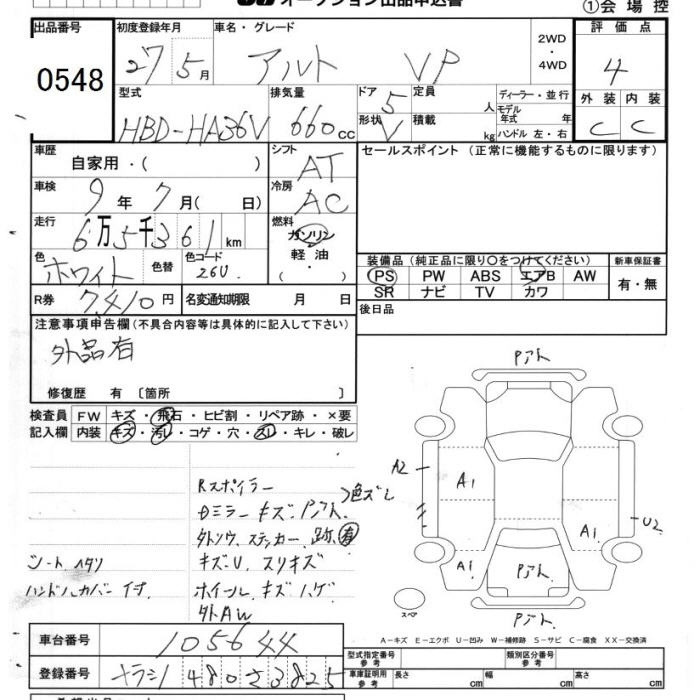 オークション出品申込書
①会場控
出品番号 初度登録年月 車名・グレード 評価点
0548 27 5月 アルト VP 2WD・4WD 4
型式 排気量 ドア 定員 ディーラー・並行 外装 内装
HBD-HA36V 660cc 5 人 モデル年式 年 C C
形状 V 積載 kg ハンドル 左・右
車歴 自家用・( ) シフト AT セールスポイント (正常に機能するものに限ります)
車検 9年 7月( 日) 冷房 AC
走行 6万5千361km 燃料 ガソリン 軽油・( )
色 ホワイト 色替 色コード 26U
装備品 (純正品に限り○をつけてください) 新車保証書
PS PW ABS エアB AW 有・無
SR ナビ TV カワ
R券 7,410円 名変通知期限 月 日 後日品
注意事項申告欄 (不具合内容等は具体的に記入して下さい)
外品有
修復歴 有 〔箇所 〕
検査員 FW キズ・飛石・ヒビ割・リペア跡・×要
記入欄 内装 キズ・汚レ・コゲ・穴・スレ・キレ・破レ
Rスポイラー 色ズレ
Gミラー キズ Pアト
ステッカー 跡 有
シート ヘタリ キズU、スリキズ
ハンドルカバー 付 ホイール キズ ハゲ
外AW
Pアト
A2
A1
A1
U2
A1
Pアト
スペア
Pアト
A-キズ E-エクボ U-凹み W-補修跡 S-サビ C-腐食 XX-交換済
車台番号 105644
型式指定番号 参考 類別区分番号 参考
登録番号 480 さ 3825
車庫証明用 参考 長さ cm 幅 cm 高さ cm